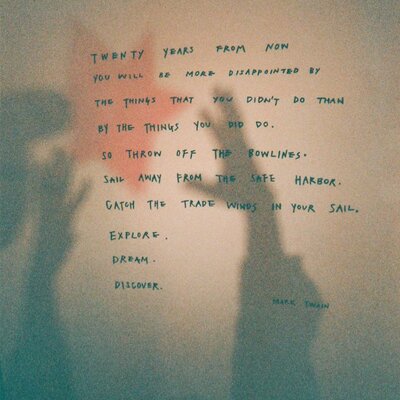 TWENTY YEARS FROM NOW
YOU WILL BE MORE DISAPPOINTED BY
THE THINGS THAT YOU DIDN'T DO THAN
BY THE THINGS YOU DID DO.
SO THROW OFF THE BOWLINES.
SAIL AWAY FROM THE SAFE HARBOR.
CATCH THE TRADE WINDS IN YOUR SAIL.
EXPLORE.
DREAM.
DISCOVER.
MARK TWAIN